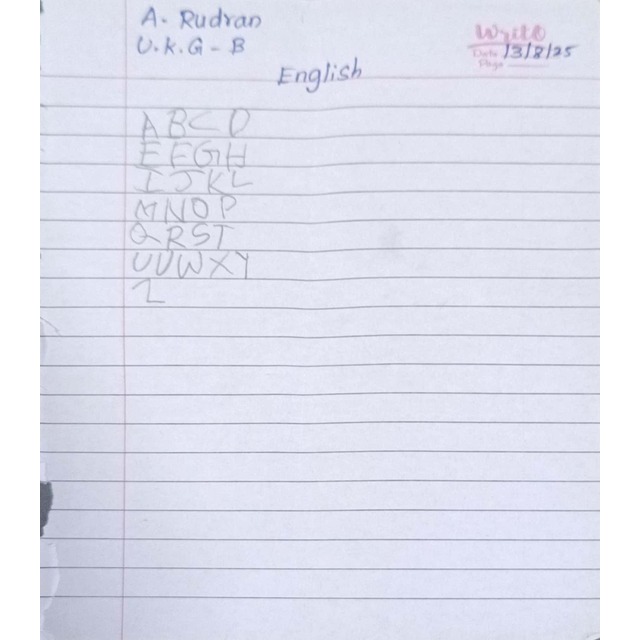 A. Rudran
U.K.G - B
Write
Date 13/8/25
Page
English
A B C D
E F G H
I J K L
M N O P
Q R S T
U V W X Y
Z